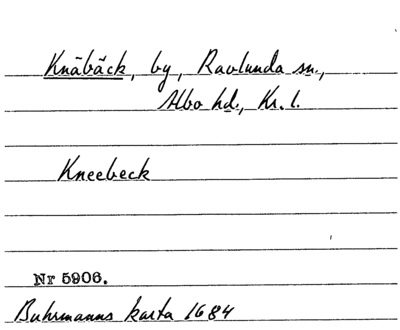 Knäbäck, by, Ravlunda sn.,
Albo hd., Kr. l.
Kneebeck
Nr 5906.
Buhrmanns karta 1684